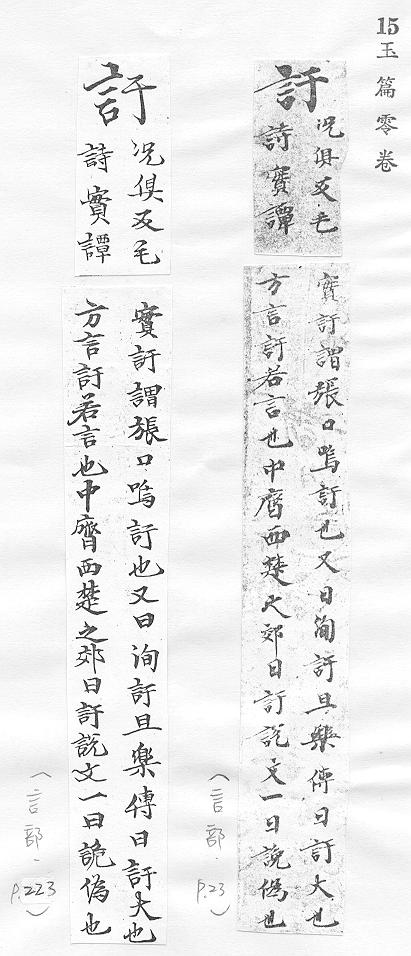 15 玉篇零卷
訏
况俱反毛
詩實譚
實訏謂張口嗚訏也又曰洵訏旦樂傳曰訏大也
方言訏若言也中齊西楚之郊曰訏說文一曰詭偽也
(言部. p.23)
訏
况俱反毛
詩實譚
實訏謂張口嗚訏也又曰洵訏旦樂傳曰訏大也
方言訏若言也中齊西楚之郊曰訏說文一曰詭偽也
(言部. p.223)